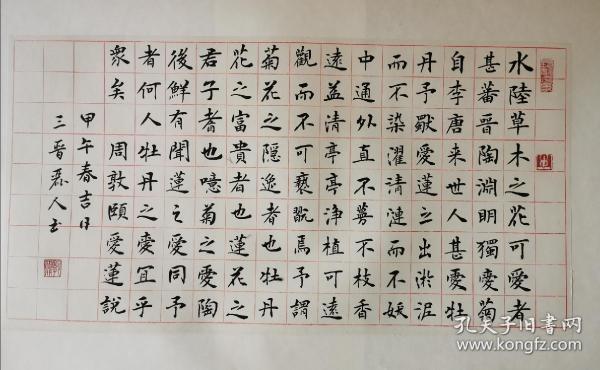 水陸草木之花可愛者
甚蕃晉陶淵明獨愛菊
自李唐来世人甚愛牡
丹予愛蓮之出淤泥
而不染濯清漣而不妖
中通外直不蔓不枝香
遠益清亭亭净植可遠
觀而不可褻翫焉予謂
菊花之隱逸者也牡丹
花之富貴者也蓮花之
君子者也噫菊之愛陶
後鮮有聞蓮之愛同予
者何人牡丹之愛宜乎
衆矣 周敦頤愛蓮說
甲午春吉日
三晋磊人书
孔夫子旧书网
www.kongfz.com